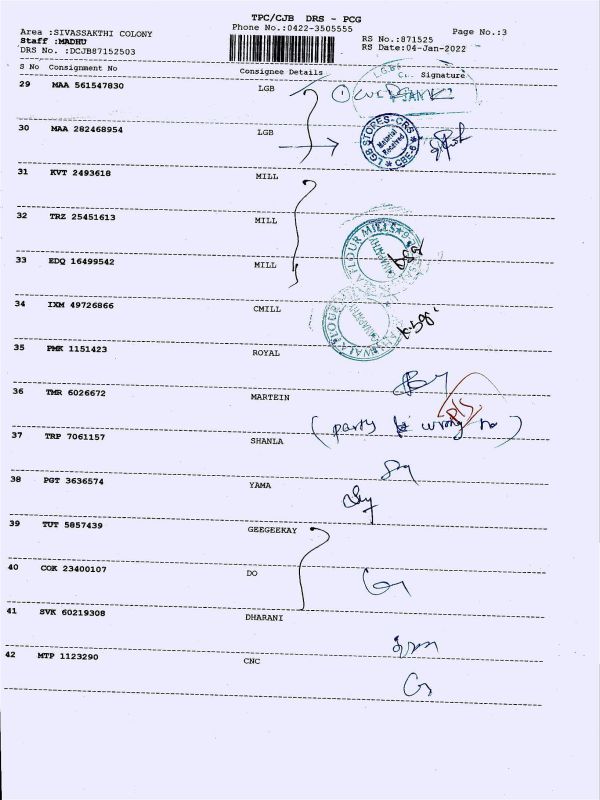 TPC/CJB DRS - PCG
Phone No.:0422-3505555
Area :SIVASSAKTHI COLONY
Staff :MADHU
DRS No. :DCJB87152503
RS No.:871525
RS Date:04-Jan-2022
Page No.:3
S No Consignment No Consignee Details Signature
29 MAA 561547830 LGB
30 MAA 282468954 LGB
LGB STORES-CRS
Material Received
CBE-6
31 KVT 2493618 MILL
32 TRZ 25451613 MILL
33 EDQ 16499542 MILL
FLOUR MILLS
34 IXM 49726866 CMILL
35 PMK 1151423 ROYAL
36 TMR 6026672 MARTEIN
(party wrong no)
37 TRP 7061157 SHANLA
38 PGT 3636574 YAMA
39 TUT 5857439 GEEGEEKAY
40 COK 23400107 DO
41 SVK 60219308 DHARANI
42 MTP 1123290 CNC